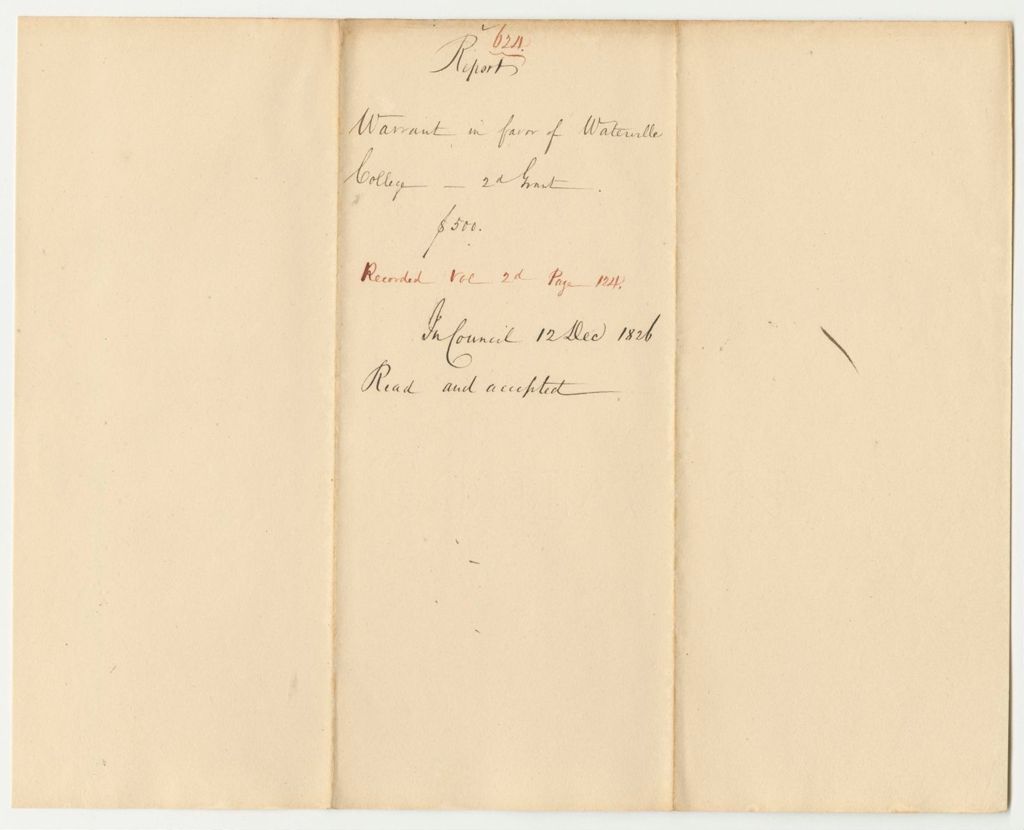 624.
Report
Warrant in favor of Waterville
College — 2d Grant.
$500.
Recorded Vol 2d Page 124.
In Council 12 Dec 1826
Read and accepted